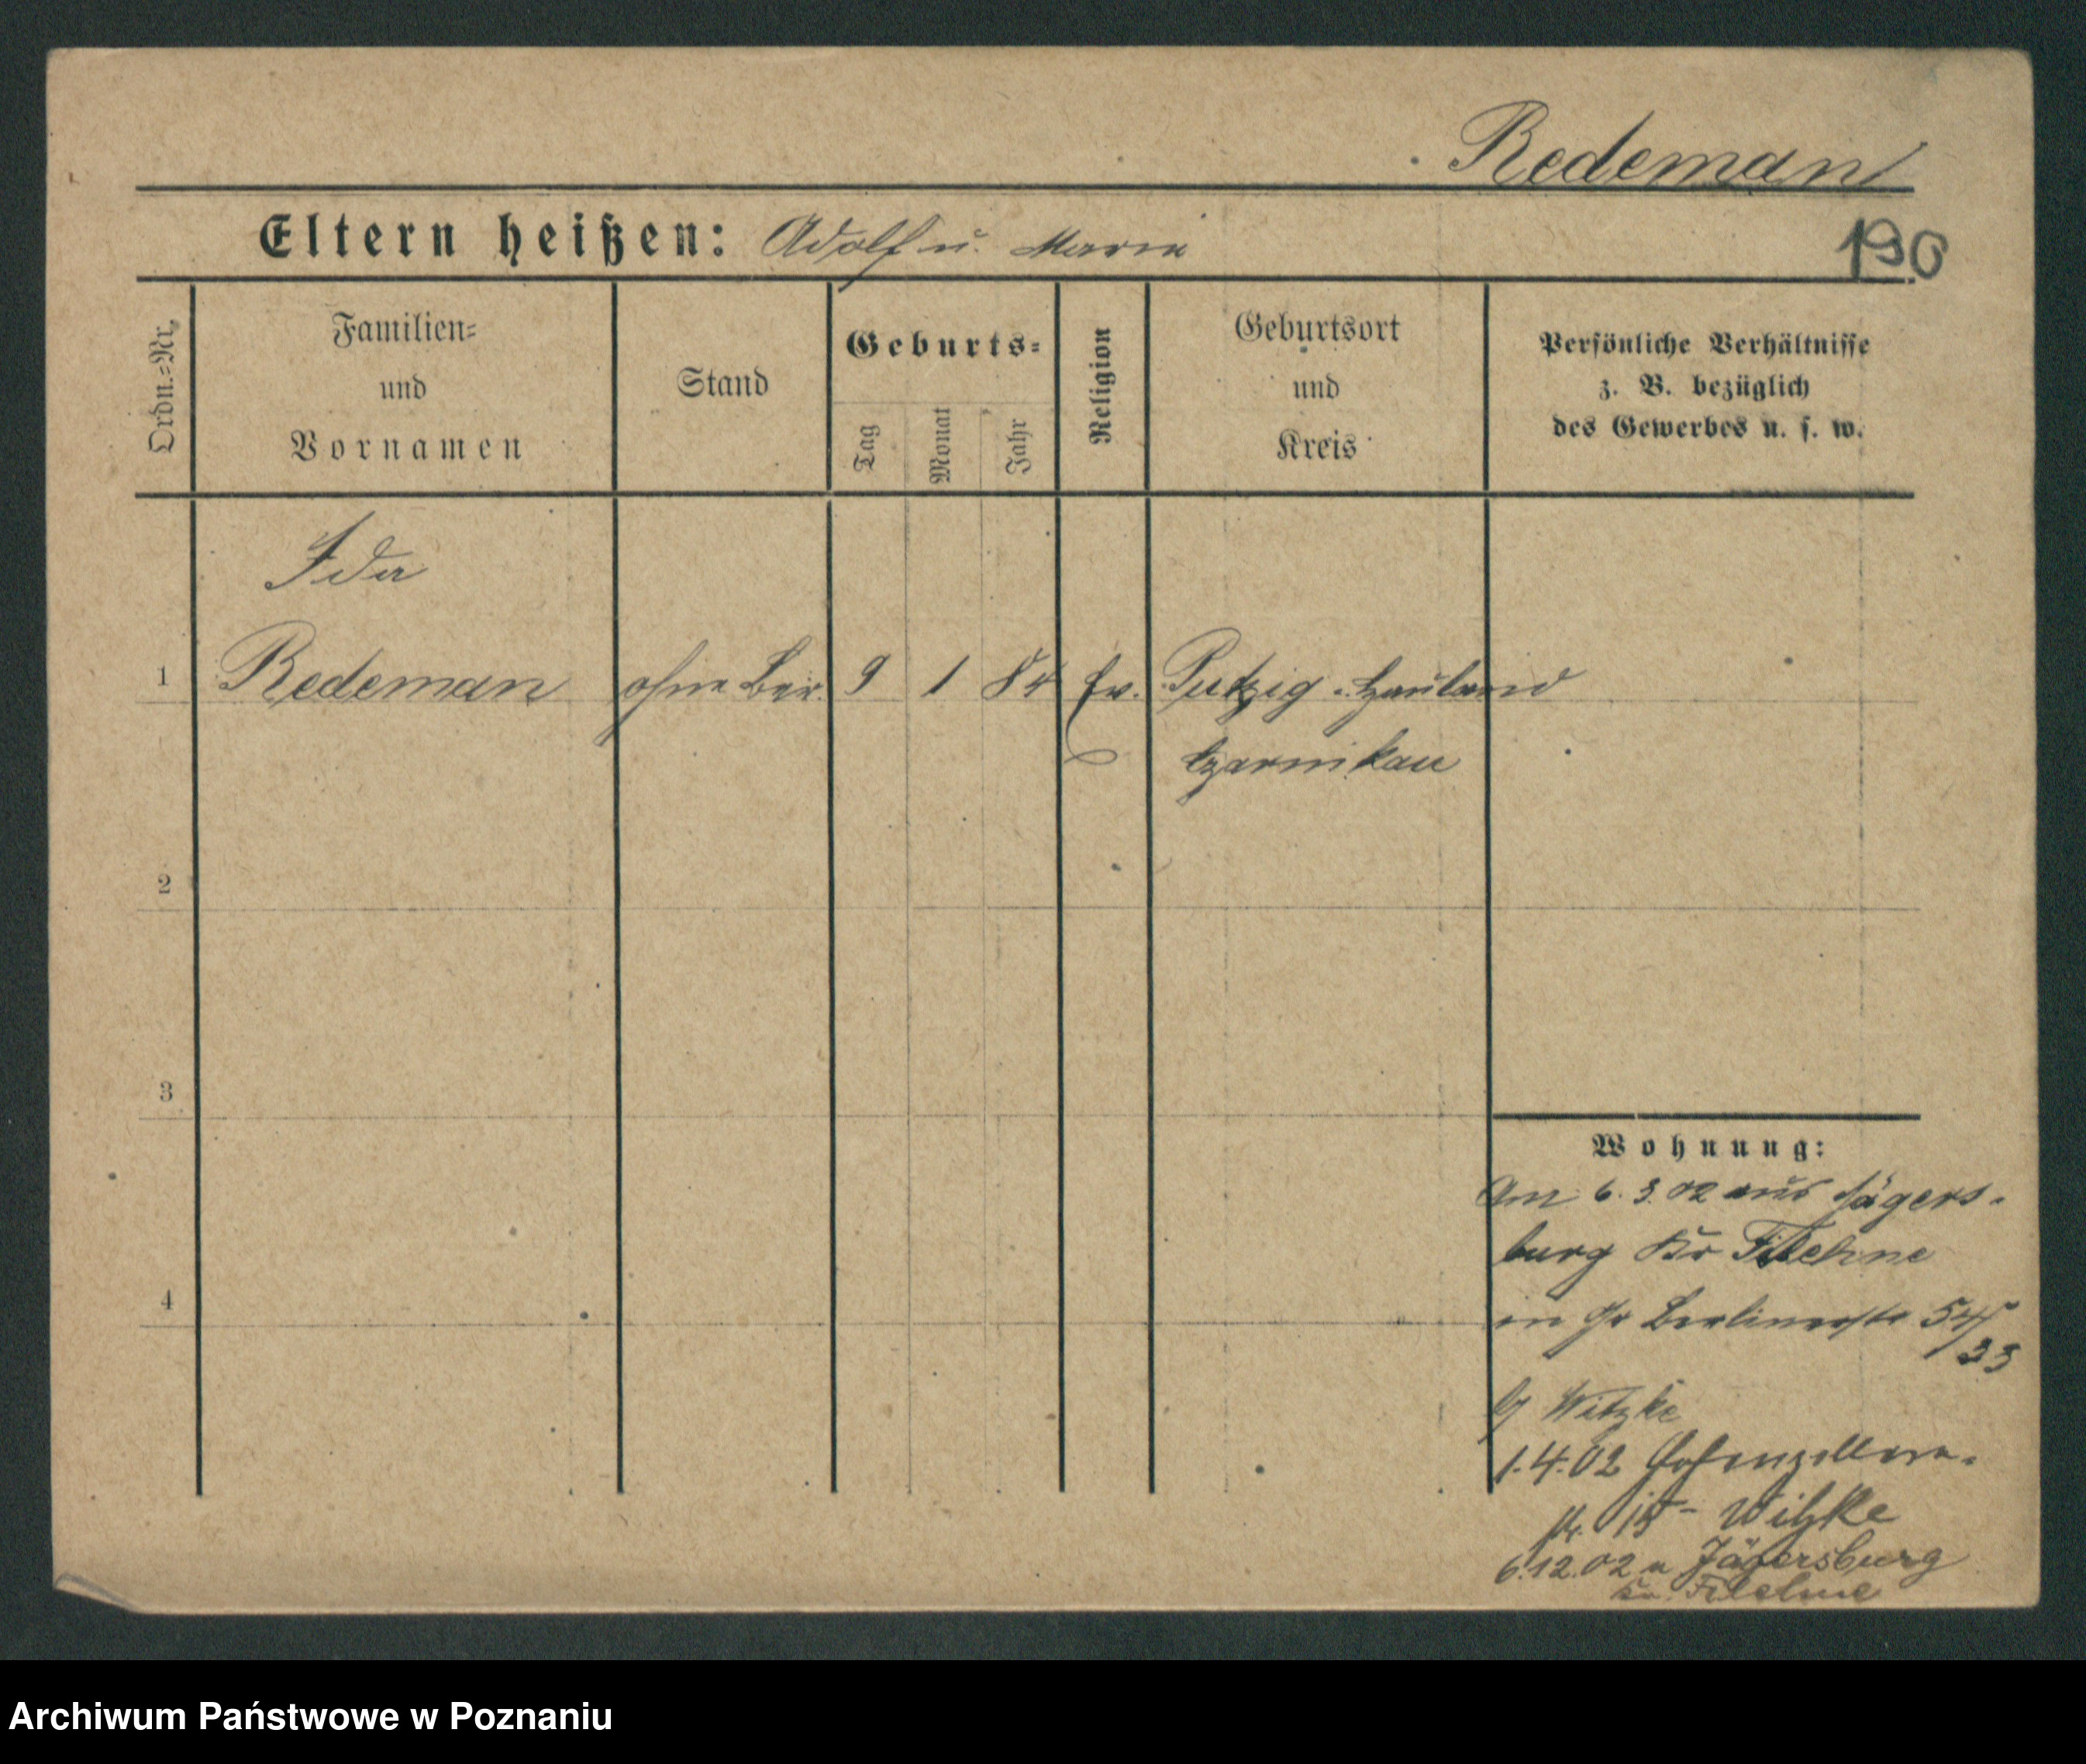 Redeman
Eltern heißen: Adolf u. Marie
196
Ordn.-Nr.
Familien-
und
Vornamen
Stand
Geburts-
Tag
Monat
Jahr
Religion
Geburtsort
und
Kreis
Persönliche Verhältnisse
z. B. bezüglich
des Gewerbes u. s. w.
Ida
1 Redeman ohne Ber. 9 1 84 Ev. Putzig-Hauland
Czarnikau
2
3
4
Wohnung:
Am 6. 3. 02 aus Jägers-
burg Kr Filehne
in Gr Berlinerstr 54/
33
b/ Witzke
1.4.02 Hohenzollern-
str. 15 - Witzke
6.12.02 n Jägersburg
Kr. Filehne
Archiwum Państwowe w Poznaniu